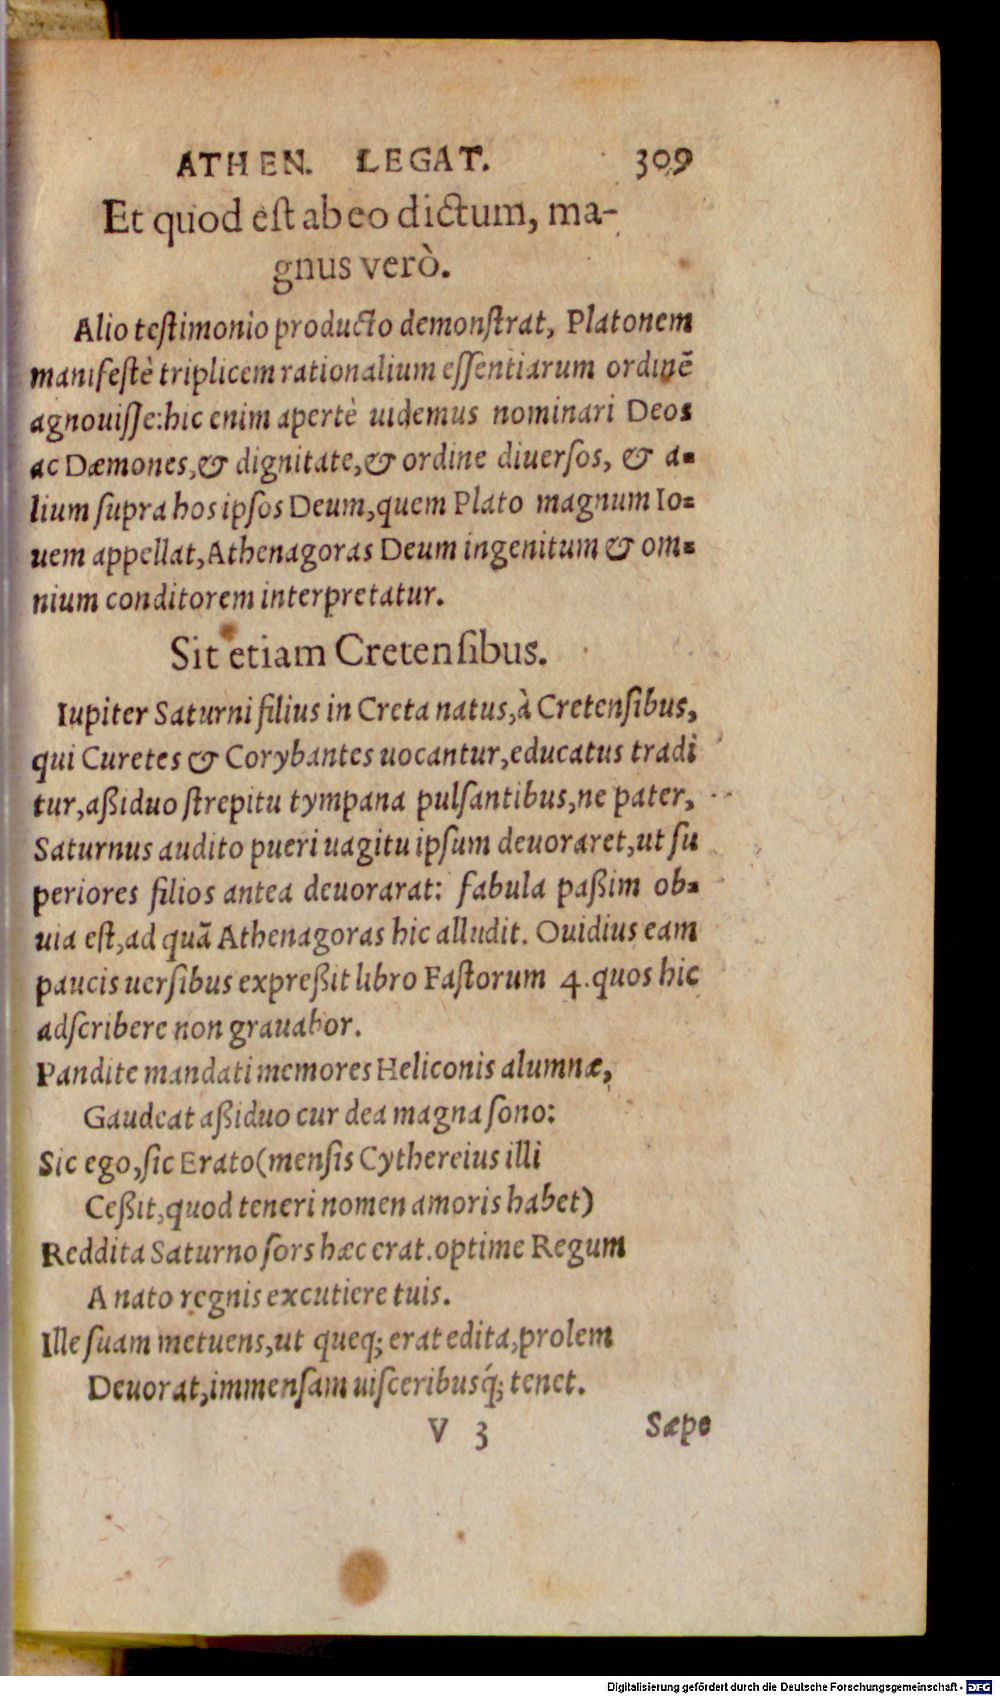 ATHEN. LEGAT. 309
Et quod est ab eo dictum, ma-
gnus verò.
Alio testimonio producto demonstrat, Platonem
manifestè triplicem rationalium essentiarum ordinẽ
agnouisse: hic enim apertè uidemus nominari Deos
ac Dæmones, & dignitate, & ordine diuersos, & a-
lium supra hos ipsos Deum, quem Plato magnum Io-
uem appellat, Athenagoras Deum ingenitum & om-
nium conditorem interpretatur.
Sit etiam Cretensibus.
Iupiter Saturni filius in Creta natus, à Cretensibus,
qui Curetes & Corybantes uocantur, educatus tradi
tur, aßiduo strepitu tympana pulsantibus, ne pater,
Saturnus audito pueri uagitu ipsum deuoraret, ut su
periores filios antea deuorarat: fabula paßim ob-
uia est, ad quã Athenagoras hic alludit. Ouidius eam
paucis uersibus expreßit libro Fastorum 4. quos hic
adscribere non grauabor.
Pandite mandati memores Heliconis alumnæ,
Gaudeat aßiduo cur dea magna sono:
Sic ego, sic Erato (mensis Cythereius illi
Ceßit, quod teneri nomen amoris habet)
Reddita Saturno sors hæc erat. optime Regum
A nato regnis excutiere tuis.
Ille suam metuens, ut queq; erat edita, prolem
Deuorat, immensam uisceribusq́; tenet.
V 3 Sæpe
Digitalisierung gefördert durch die Deutsche Forschungsgemeinschaft - DFG